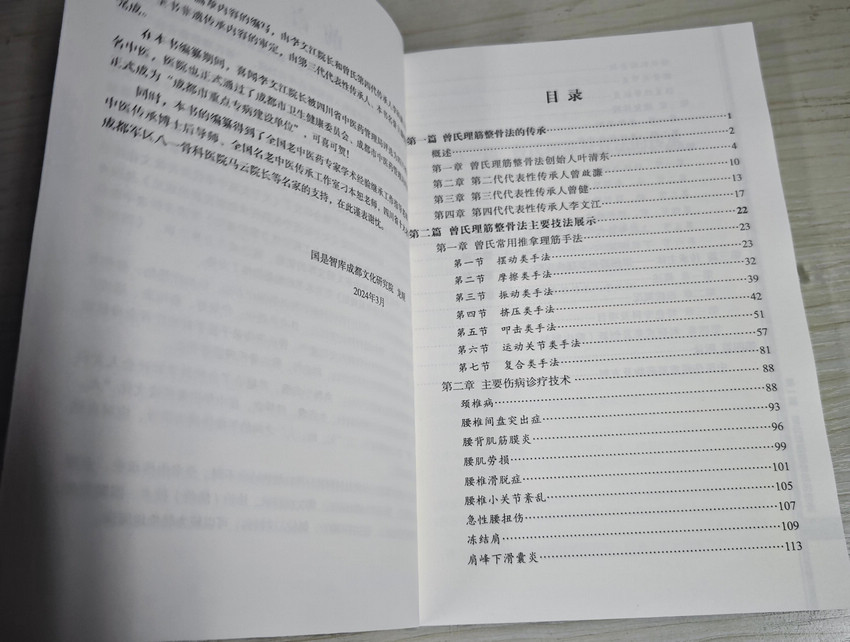 承内容的编写，由李文江院长和曾氏第四代传承人李
全书非遗传承内容的审定，由第三代代表性传承人、本书名
完成。
在本书编纂期间，喜闻李文江院长被四川省中医药管理局评选为
名中医，医院也正式通过了成都市卫生健康委员会、成都市中医药管理局
正式成为“成都市重点专病建设单位”，可喜可贺！
同时，本书的编纂得到了全国老中医药专家学术经验继承工作
中医传承博士后导师、全国名老中医传承工作室刁本恕老师，四川省
成都军区八一骨科医院马云院长等名家的支持，在此谨表谢忱。
国是智库成都文化研究院
2024年3月
目 录
第一篇 曾氏理筋整骨法的传承……1
概述……2
第一章 曾氏理筋整骨法创始人叶清东……4
第二章 第二代代表性传承人曾敀廉……10
第三章 第三代代表性传承人曾健……13
第四章 第四代代表性传承人李文江……17
第二篇 曾氏理筋整骨法主要技法展示……22
第一章 曾氏常用推拿理筋手法……23
第一节 摆动类手法……23
第二节 摩擦类手法……32
第三节 振动类手法……39
第四节 挤压类手法……42
第五节 叩击类手法……51
第六节 运动关节类手法……57
第七节 复合类手法……81
第二章 主要伤病诊疗技术……88
颈椎病……88
腰椎间盘突出症……93
腰背肌筋膜炎……96
腰肌劳损……99
腰椎滑脱症……101
腰椎小关节紊乱……105
急性腰扭伤……107
冻结肩……109
肩峰下滑囊炎……113